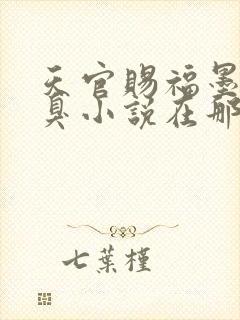 天官賜福墨
臭小說在那
七葉槿